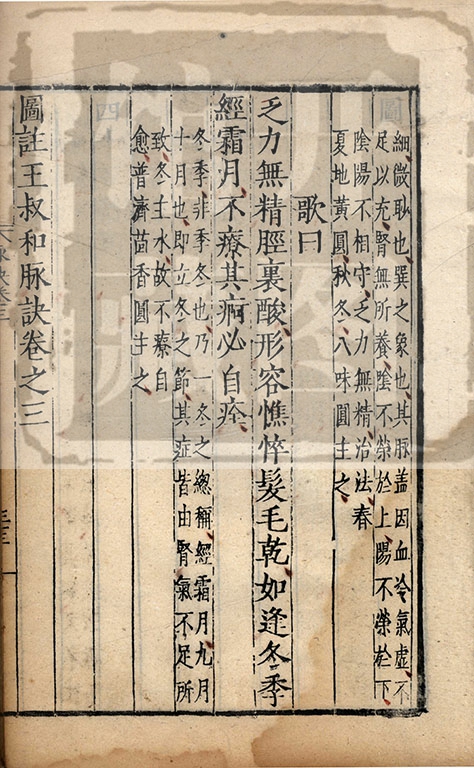 細微耿也巽之象也其脉盖因血冷氣虛不
足以充腎無所養陰不榮於上陽不榮於下
陰陽不相守乏力無精治法春
夏地黃圓秋冬八味圓主之
歌曰
乏力無精脛裏酸形容憔悴髮毛乾如逢冬季
經霜月不療其病必自痊
冬季非季冬也乃一冬之總稱經霜月九月
十月也即立冬之節其症皆由腎氣不足所
致冬土水故不療自
愈普濟茴香圓主之
圖註王叔和脉訣卷之三